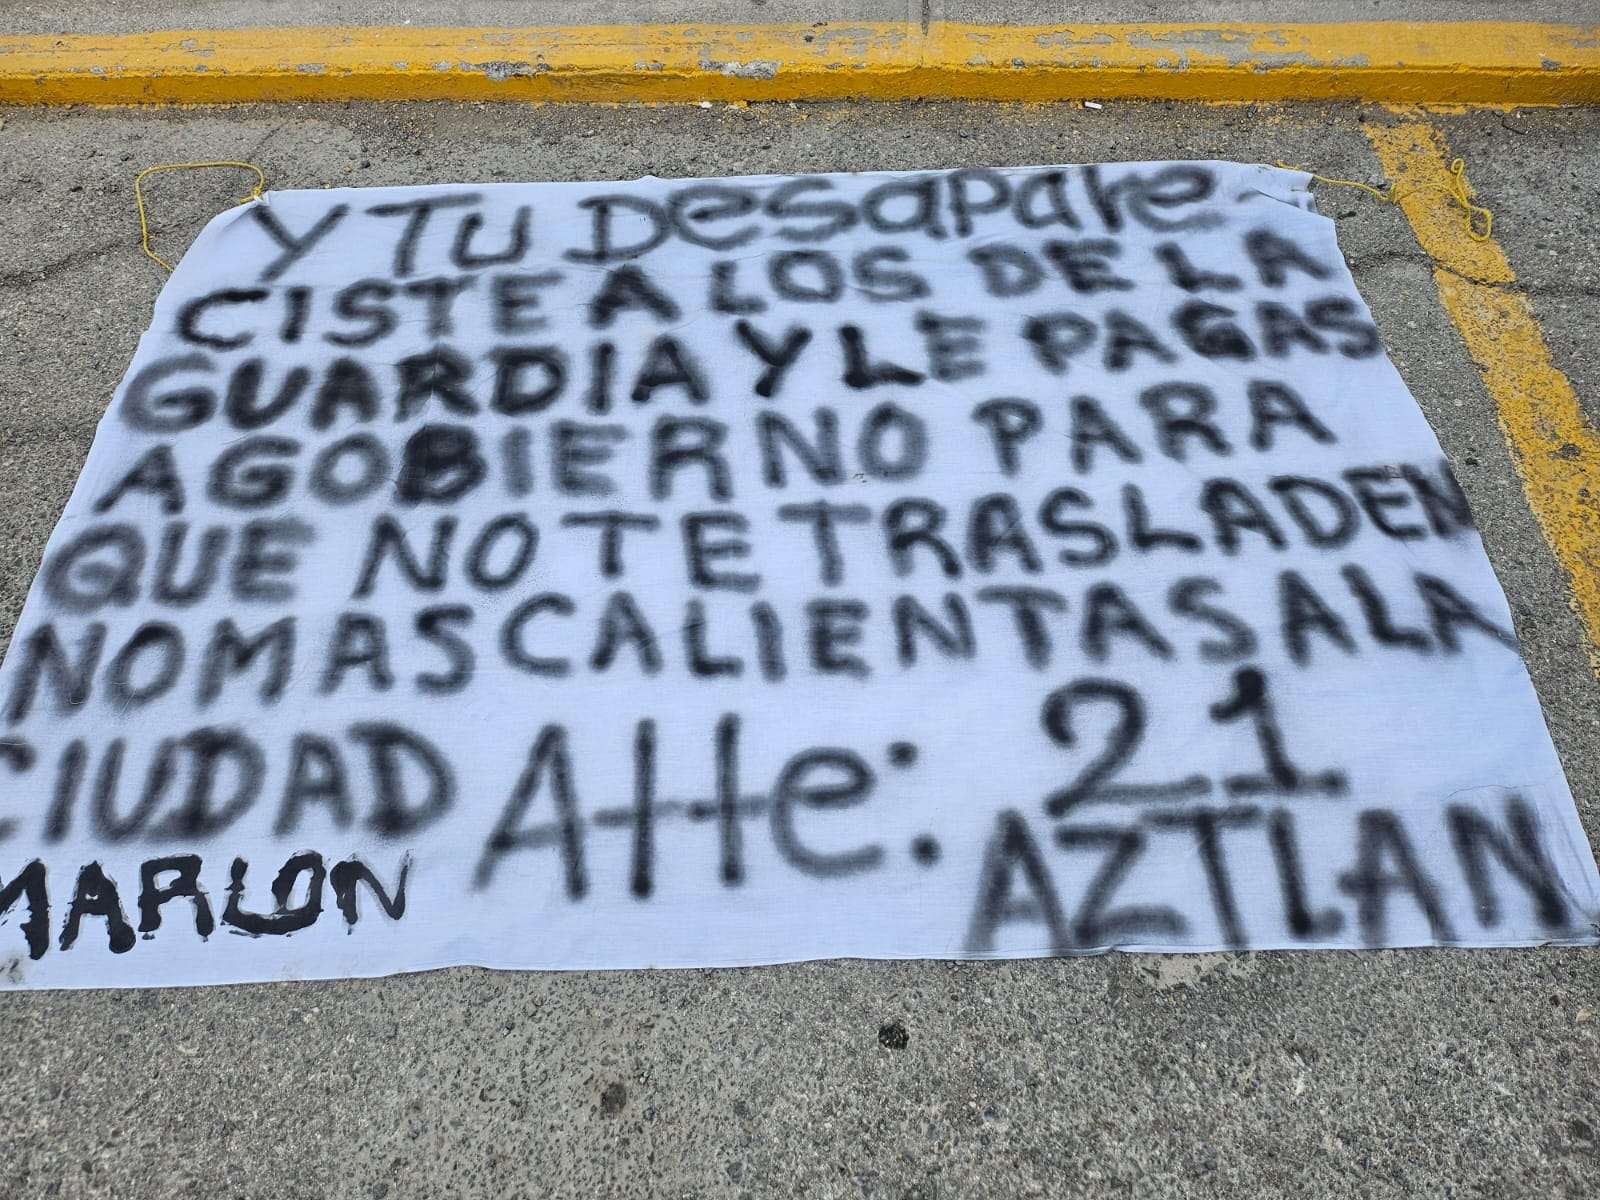 Y TU DesaPaRe-
CISTE A LOS DE LA
GUARDIA Y LE PAGAS
A GOBIERNO PARA
QUE NO TE TRASLADEN
NOMAS CALIENTAS A LA
CIUDAD Atte: 21
MARLON AZTLAN